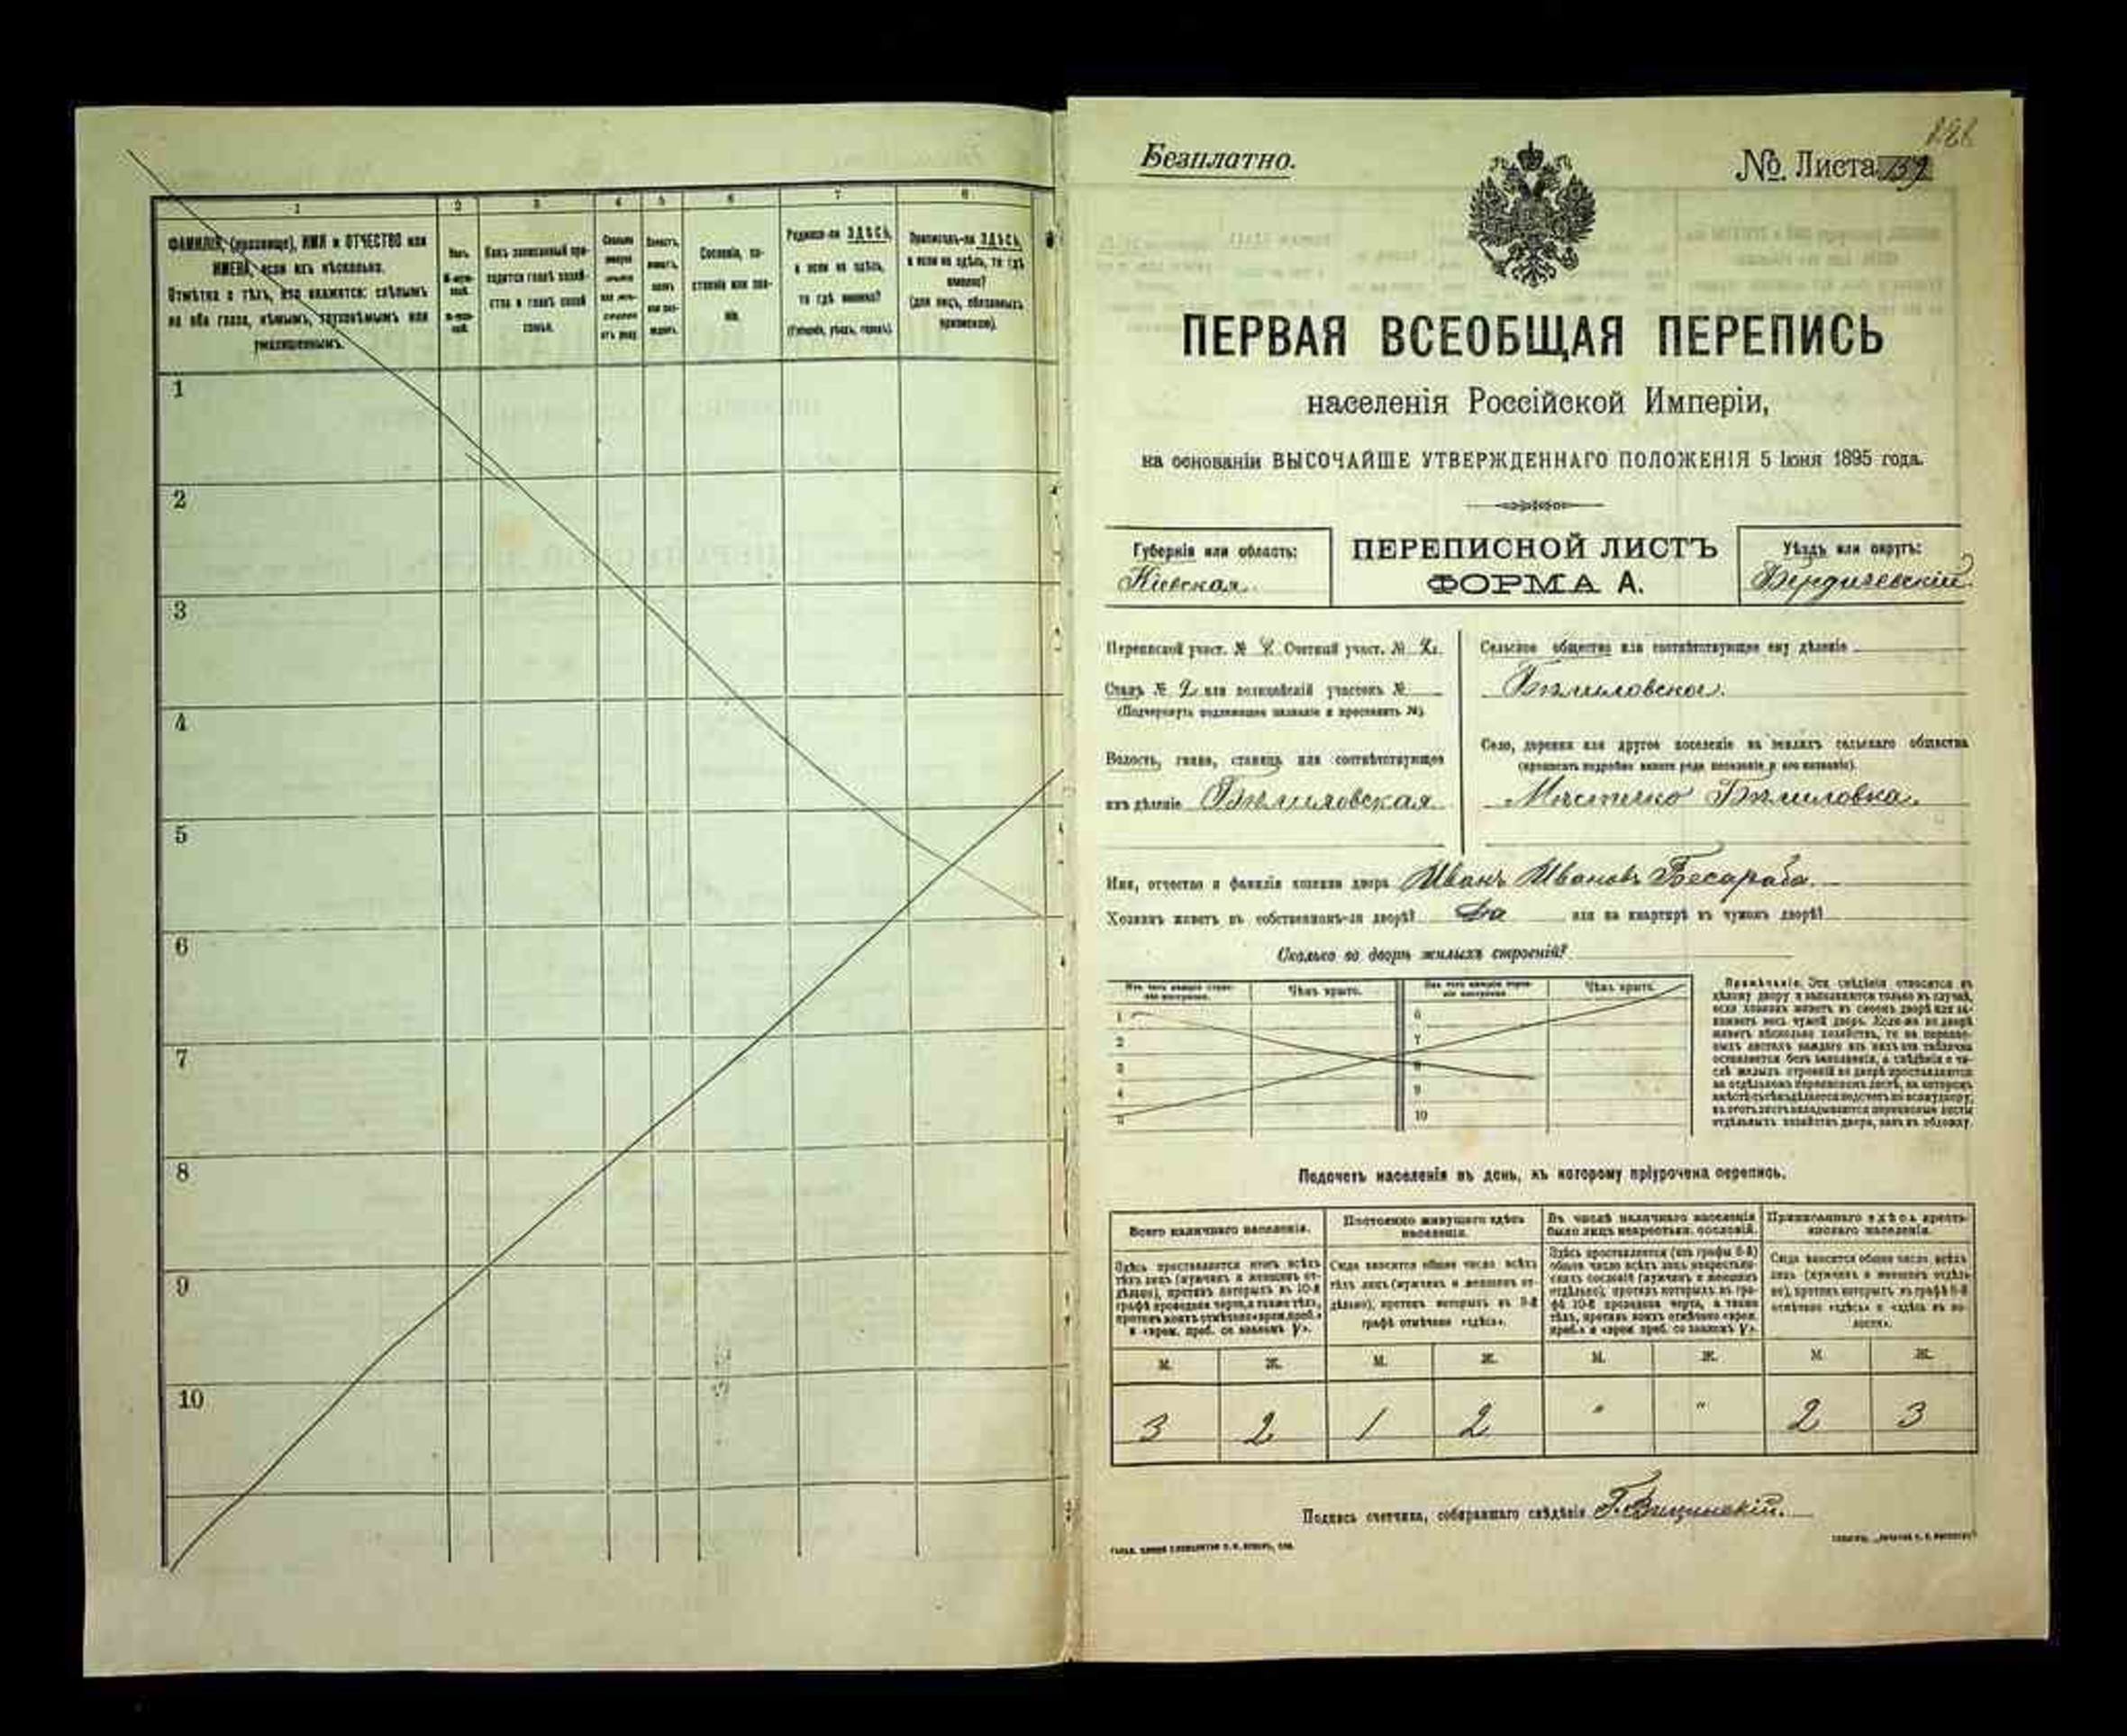 1
2
3
4
5
6
7
8
ФАМИЛІЯ, (прозвище), ИМЯ и ОТЧЕСТВО или
ИМЕНА, если ихъ нѣсколько.
Отмѣтка о тѣхъ, кто окажется: слѣпымъ
на оба глаза, нѣмымъ, глухонѣмымъ или
умалишеннымъ.
Какъ записанный при-
ходится главѣ хозяй-
ства и главѣ своей
семьи.
Сословіе, со-
стояніе или зва-
ніе.
Родился-ли ЗДѢСЬ,
а если не здѣсь,
то гдѣ именно?
(Губернія, уѣздъ, городъ).
Приписанъ-ли ЗДѢСЬ,
а если не здѣсь, то гдѣ
именно?
(для лицъ, обязанныхъ
припискою).
1
2
3
4
5
6
7
8
9
10
Безплатно.
№ Листа 159
ПЕРВАЯ ВСЕОБЩАЯ ПЕРЕПИСЬ
населенія Россійской Имперіи,
на основаніи ВЫСОЧАЙШЕ УТВЕРЖДЕННАГО ПОЛОЖЕНІЯ 5 Іюня 1895 года.
Губернія или область:
Кіевская.
ПЕРЕПИСНОЙ ЛИСТЪ
ФОРМА А.
Уѣздъ или округъ:
Бердичевскій
Переписной участ. № Счетный участ. №
Станъ № 2 или полицейскій участокъ №
(Подчеркнуть подлежащее названіе и проставить №).
Волость, гмина, станица или соотвѣтствующее
имъ дѣленіе Бѣлиловская
Сельское общество или соотвѣтствующее ему дѣленіе
Бѣлиловское.
Село, деревня или другое поселеніе на земляхъ сельскаго общества
(прописать подробно какого рода поселеніе и его названіе).
Мѣстечко Бѣлиловка.
Имя, отчество и фамилія хозяина двора Иванъ Ивановъ Бесараба.
Хозяинъ живетъ въ собственномъ-ли дворѣ? Да или на квартирѣ въ чужомъ дворѣ?
Сколько во дворѣ жилыхъ строеній?
Изъ чего каждое строе-
ніе построено.
Чѣмъ крыто.
Изъ чего каждое строе-
ніе построено.
Чѣмъ крыто.
1
2
3
4
5
6
7
8
9
10
Примѣчаніе. Эти свѣдѣнія относятся къ
цѣлому двору и заполняются только въ случаѣ,
если хозяинъ живетъ въ своемъ дворѣ или за-
нимаетъ весь чужой дворъ. Если-же во дворѣ
живетъ нѣсколько хозяйствъ, то на перепис-
ныхъ листахъ каждаго изъ нихъ эта табличка
оставляется безъ заполненія, а свѣдѣнія о чи-
слѣ жилыхъ строеній во дворѣ проставляются
на отдѣльномъ переписномъ листѣ, на которомъ
вмѣстѣ съ тѣмъ дѣлается подсчетъ по всему двору;
въ этотъ листъ вкладываются переписные листы
отдѣльныхъ хозяйствъ двора, какъ въ обложку.
Подсчетъ населенія въ день, къ которому пріурочена перепись.
Всего наличнаго населенія.
Здѣсь проставляется итогъ всѣхъ
тѣхъ лицъ (мужчинъ и женщинъ от-
дѣльно), противъ которыхъ въ 10-й
графѣ проведена черта, а также тѣхъ,
противъ коихъ отмѣчено «врем. преб.»
и «врем. преб. со знакомъ V».
Постоянно живущаго здѣсь
населенія.
Сюда вносится общее число всѣхъ
тѣхъ лицъ (мужчинъ и женщинъ от-
дѣльно), противъ которыхъ въ 9-й
графѣ отмѣчено «здѣсь».
Въ числѣ наличнаго населенія
было лицъ некрестьян. сословій.
Здѣсь проставляется (изъ графы 6-й)
общее число всѣхъ лицъ некрестьян-
скихъ сословій (мужчинъ и женщинъ
отдѣльно), противъ которыхъ въ гра-
фѣ 10-й проведена черта, а также
тѣхъ, противъ коихъ отмѣчено «врем.
преб.» и «врем. преб. со знакомъ V».
Приписаннаго здѣсь кресть-
янскаго населенія.
Сюда вносится общее число всѣхъ
лицъ (мужчинъ и женщинъ отдѣль-
но), противъ которыхъ въ графѣ 8-й
отмѣчено «здѣсь» и «здѣсь въ во-
лости».
М. Ж. М. Ж. М. Ж. М. Ж.
3 2 1 2 " " 2 3
Подпись счетчика, собиравшаго свѣдѣнія